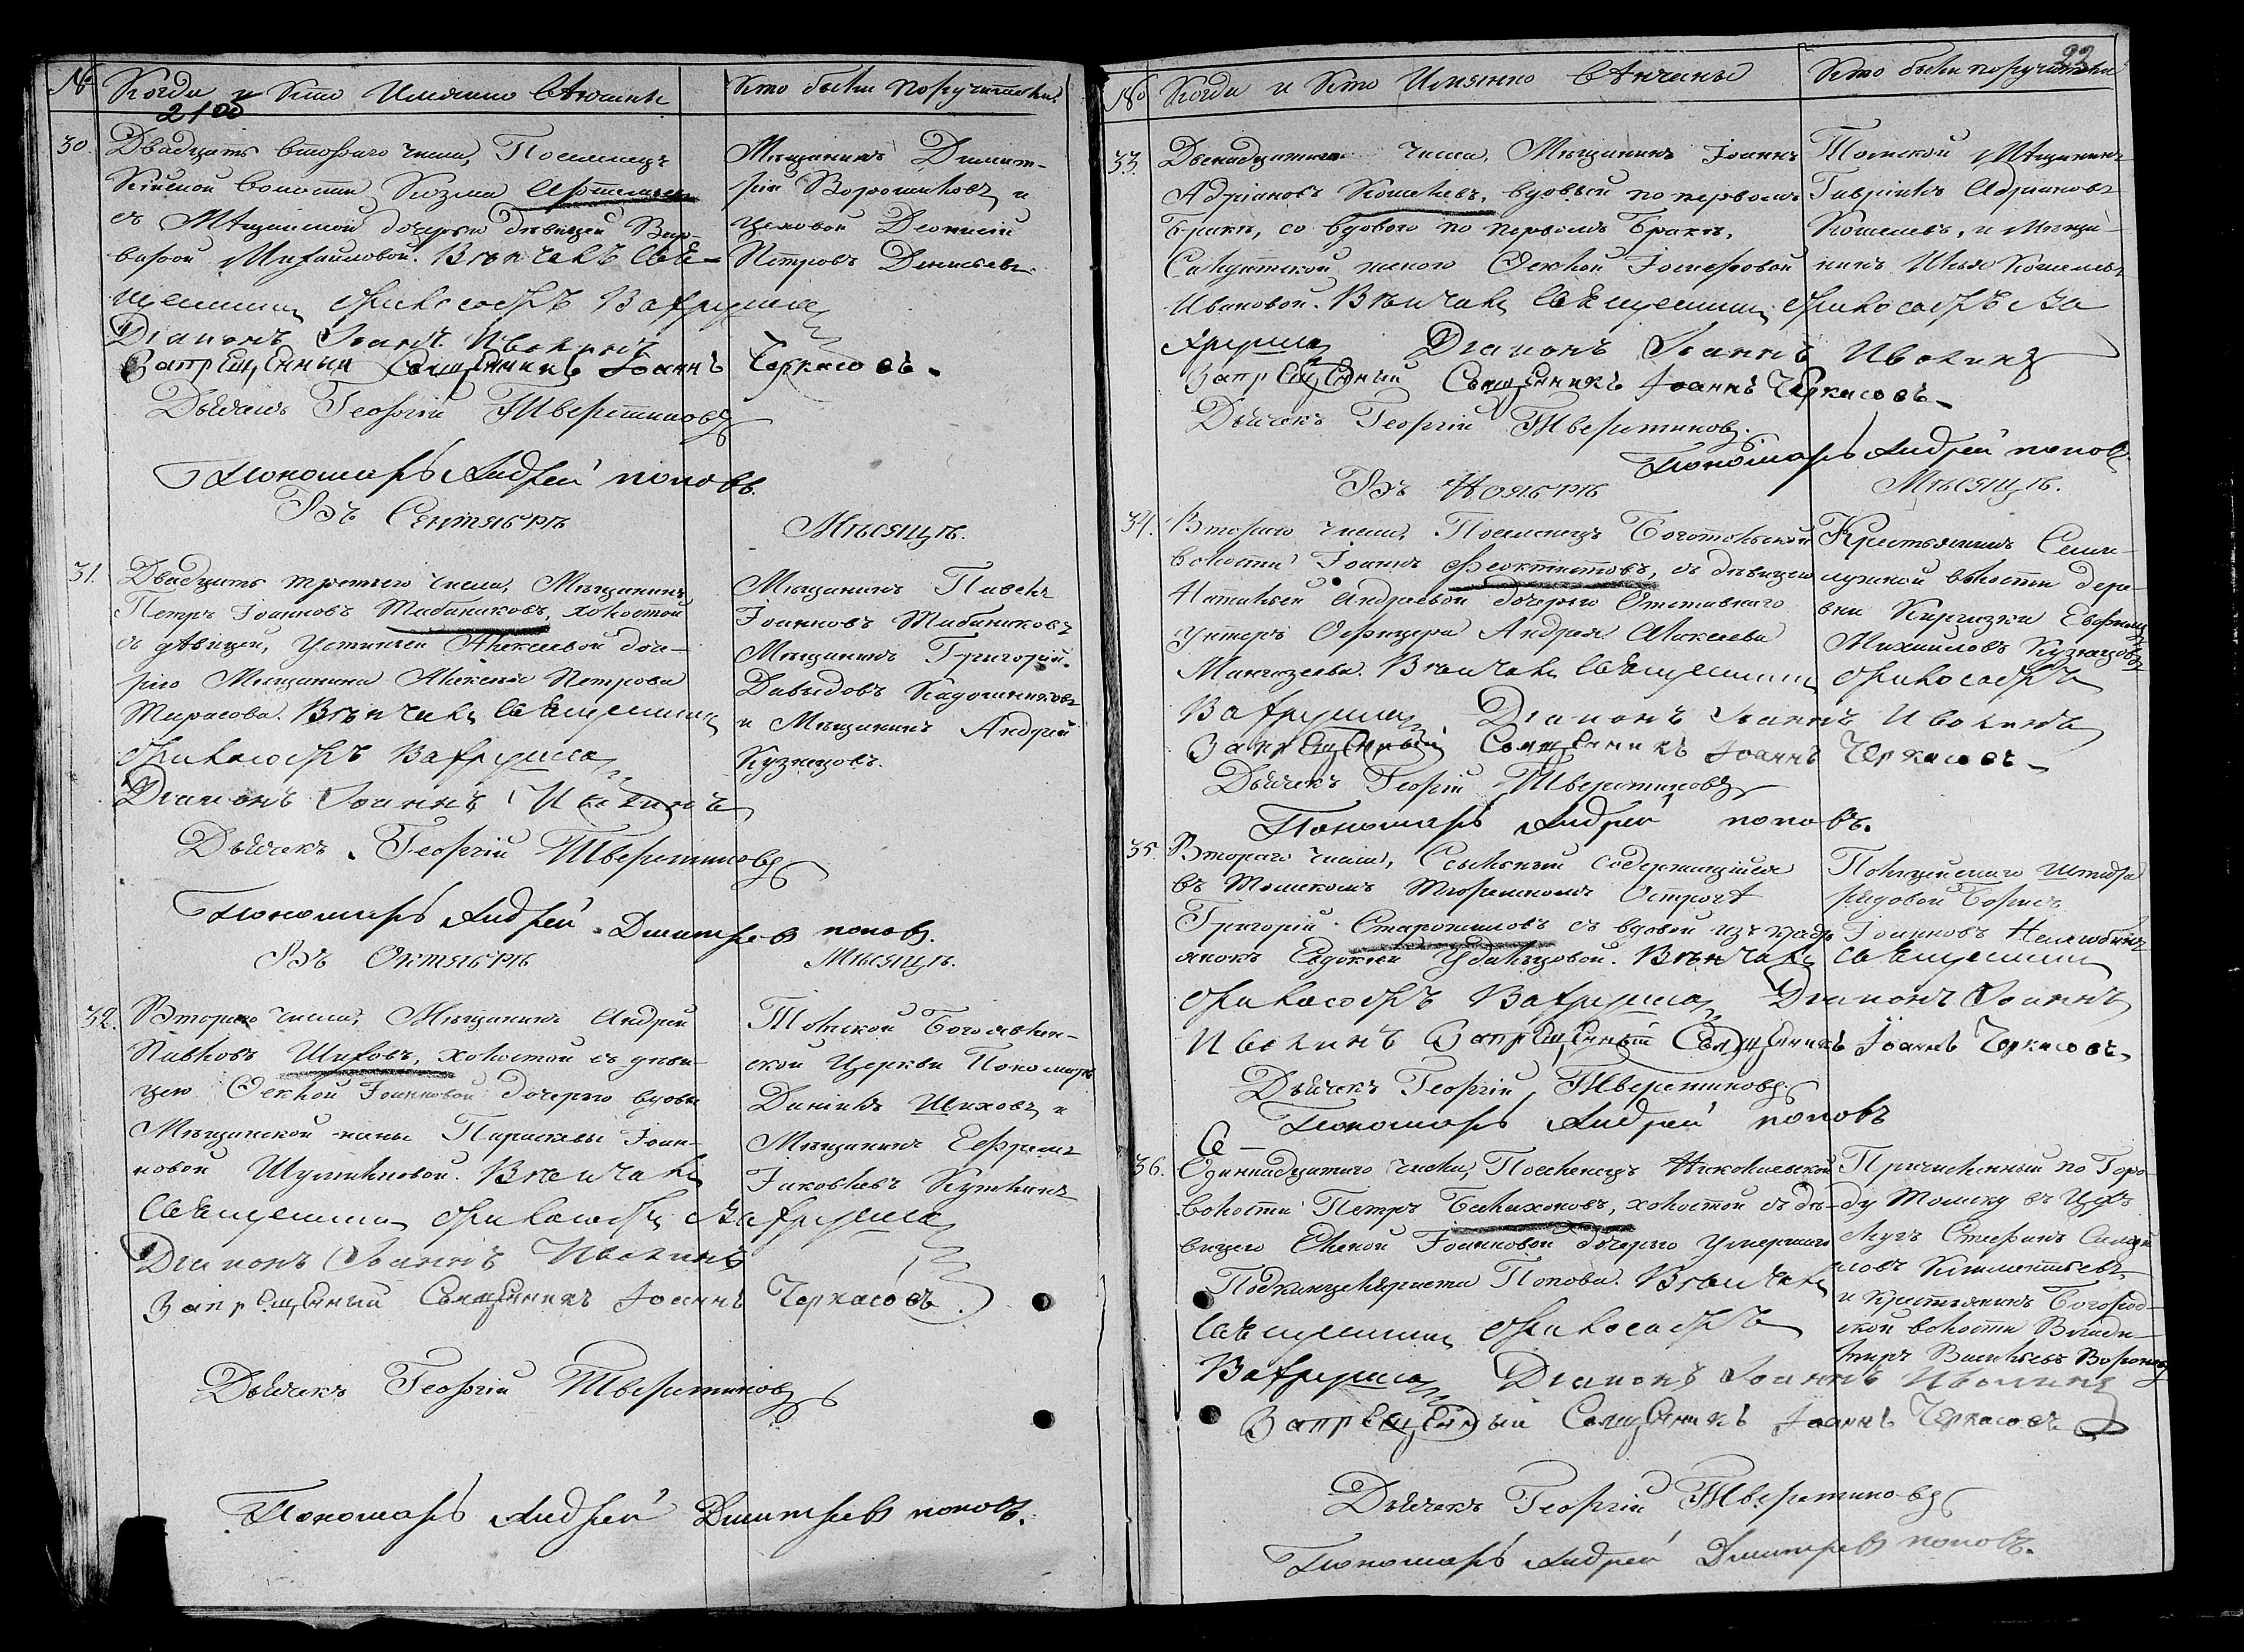 № Когда и Кто Имянно вѣнчаны Кто были поручители
21 об
30. Двадцать втораго числа, Поселенецъ
Кійской волости Козма Артемьевъ
съ Мѣщанской дочерью дѣвицей Вар-
варой Михайловой. Вѣнчалъ Свя-
щенникъ Вавруша
Діаконъ Іоаннъ Иволинъ
Запрещенный Священникъ Іоаннъ Черкасовъ.
Дьячекъ Георгій Тверетиновъ
Пономарь Андрей поповъ.
Мѣщанинъ Димит-
рій Ворошиловъ и
цеховой Деонисій
Петровъ Денисьевъ.
Въ Сентябрѣ Мѣсяцѣ.
31. Двадцать третьего числа, Мѣщанинъ
Петръ Іоанновъ Табаниковъ, холостой
съ дѣвицей, Устиньей Алексеевой доче-
рью Мѣщанина Алексея Петрова
Тарасова. Вѣнчалъ Священникъ
Вавруша
Діаконъ Іоаннъ Иволинъ
Дьячекъ Георгій Тверетиновъ
Пономарь Андрей Дмитревъ поповъ.
Мѣщанинъ Павелъ
Іоанновъ Табаниковъ
Мѣщанинъ Григорій
Давыдовъ Кадошниковъ
и Мѣщанинъ Андрей
Кузнецовъ.
Въ Октябрѣ Мѣсяцѣ.
32. Втораго числа, Мѣщанинъ Андрей
Павловъ Шиховъ, холостой съ дѣви-
цею Феклой Іоанновой дочерью вдовы
Мѣщанской жены Парасквы Іоан-
новой Шумиловой. Вѣнчалъ
Священникъ Вавруша
Діаконъ Іоаннъ Иволинъ
Запрещенный Священникъ Іоаннъ Черкасовъ
Дьячекъ Георгій Тверетиновъ
Пономарь Андрей Дмитревъ поповъ.
Томской Богоявлен-
ской Церкви Пономарь
Даніилъ Шиховъ и
Мѣщанинъ Ефремъ
Іаковлевъ Куткинъ
22
№ Когда и Кто Имянно вѣнчаны Кто были поручители
33. числа, Мѣщанинъ Іоаннъ
Адріановъ Кошелевъ, вдовый по первомъ
бракѣ, со вдовою по первомъ бракѣ,
Солдатской женою Феклой
Ивановой. Вѣнчалъ Священникъ Ва
вруша Діаконъ Іоаннъ Иволинъ
Запрещенный Священникъ Іоаннъ Черкасовъ
Дьячекъ Георгій Тверетиновъ.
Пономарь Андрей поповъ.
Томской Мѣщанинъ
Гавріилъ Адріановъ
Кошелевъ, и Мѣща-
нинъ Илья Кошелевъ
Въ Ноябрѣ Мѣсяцѣ.
34. Втораго числа, Поселенецъ Боготольской
волости Іоаннъ Феоктистовъ, съ дѣвицею
Натальей Андреевой дочерью Отставнаго
Унтеръ Офицера Андрея Алексеева
Вѣнчалъ Священникъ
Вавруша Діаконъ Іоаннъ Иволинъ
Запрещенный Священникъ Іоаннъ Черкасовъ
Дьячекъ Георгій Тверетиновъ
Пономарь Андрей поповъ.
Крестьянинъ Семи-
лужной волости дере-
вни Киргизки
Михайловъ Кузнецовъ
35. Втораго числа, Ссыльный содержащійся
въ Томскомъ Тюремномъ Острогѣ
Григорій Старошиловъ съ вдовой изъ
Евдокіей Удальцовой. Вѣнчалъ Священникъ
Вавруша Діаконъ Іоаннъ
Иволинъ Запрещенный Священникъ Іоаннъ Черкасовъ
Дьячекъ Георгій Тверетиновъ
Пономарь Андрей поповъ
Полицейскаго Штата
рядовой Борисъ
Іоанновъ
36. Одиннадцатаго числа, Поселенецъ Николаевской
волости Петръ Балахоновъ, холостой съ дѣ-
вицею Еленой Іоанновой дочерью умершаго
Подканцеляриста Попова. Вѣнчалъ
Священникъ
Вавруша Діаконъ Іоаннъ Иволинъ
Запрещенный Священникъ Іоаннъ Черкасовъ
Дьячекъ Георгій Тверетиновъ
Пономарь Андрей Дмитревъ поповъ.
Причисленный по Горо-
ду Томску въ Цехъ
Стефанъ
Климентьевъ
и крестьянинъ Богород-
ской волости Влади-
миръ Васильевъ Вороновъ